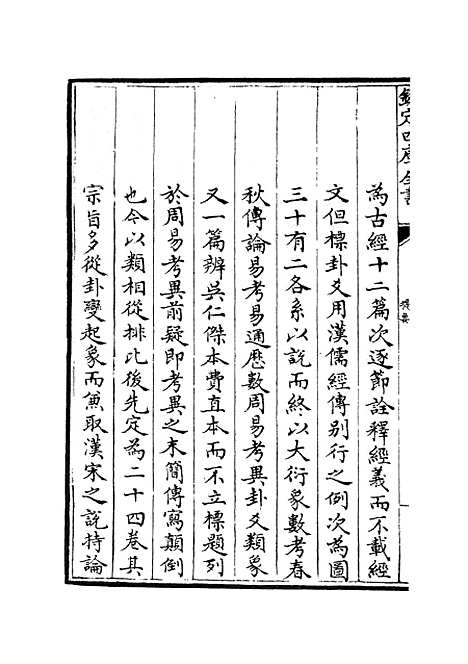 欽定四庫全書
提要
為古經十二篇次逐節詮釋經義而不載經
文但標卦爻用漢儒經傳别行之例次為圖
三十有二各系以説而終以大衍象數考春
秋傳論易考易通歴數周易考異卦爻類象
又一篇辨吳仁傑本費直本而不立標題列
於周易考異前疑即考異之末簡傳寫顛倒
也今以類相從排比後先定為二十四卷其
宗旨多從卦變起象而兼取漢宋之説持論